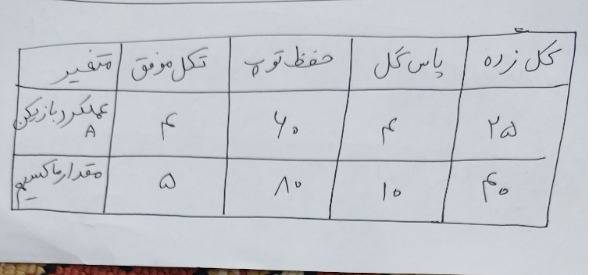 متغیر تکل موفق حفظ توپ پاس گل گل زده
عملکرد بازیکن A ۴ ۶۰ ۴ ۲۵
مقدار ماکسیمم ۵ ۸۰ ۱۰ ۴۰